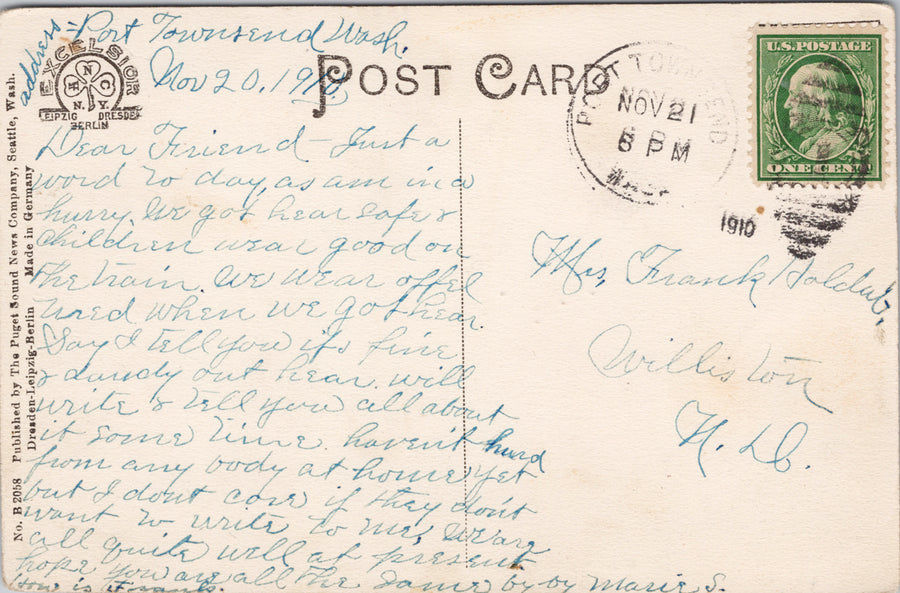 address - Port Townsend Wash.
Nov 20, 1910
EXCELSIOR
N
H C
N.Y.
LEIPZIG DRESDEN
BERLIN
POST CARD
PORT TOWNSEND
NOV 21
6 PM
WASH
1910
U.S. POSTAGE
ONE CENT
No. B 2058 Published by The Puget Sound News Company, Seattle, Wash.
Dresden-Leipzig-Berlin Made in Germany
Dear Friend - Just a
word to day, as am in a
hurry. We got hear safe &
children wear good on
the train. We wear offel
tired when we got hear.
Say I tell you its fine
& dandy out hear. will
write & tell you all about
it some time. havent hurd
from any body at home yet
but I dont care if they don't
want to write to me, We are
all quite well at present
hope you are all the same by by Marie S.
how is Frank.
Mrs, Frank
Williston
N. D.